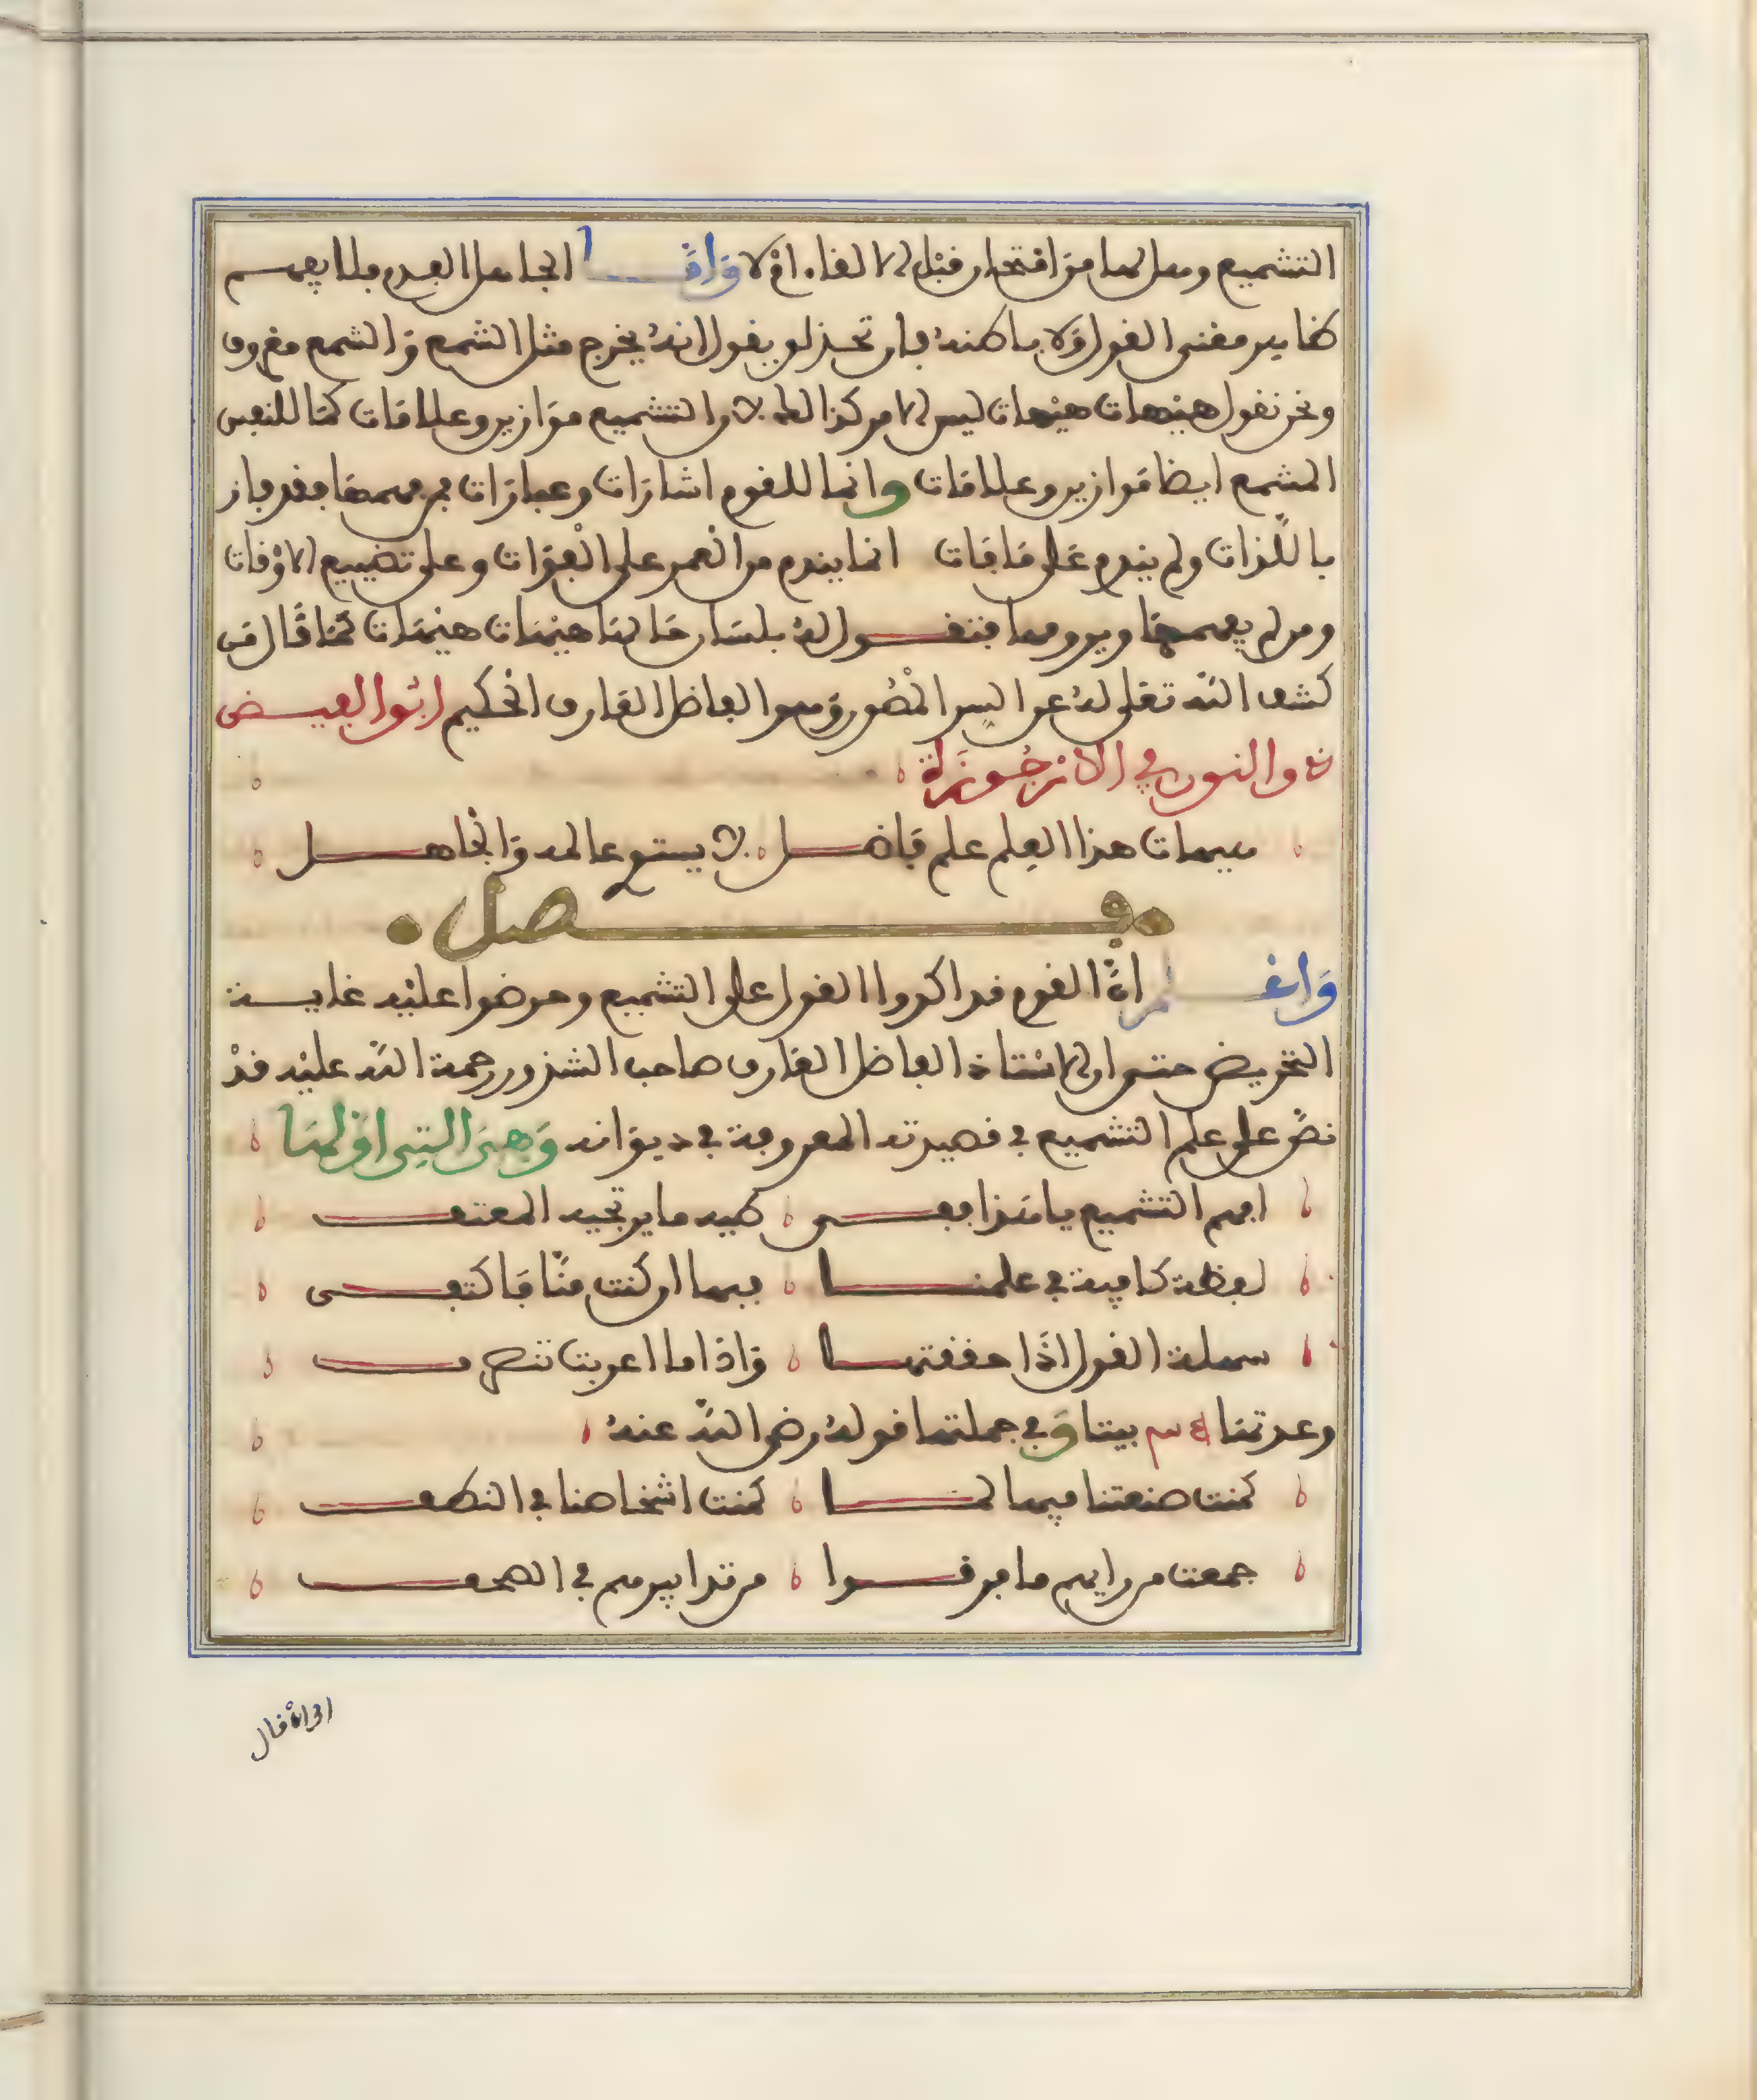 التشميع وهل لها من افتخار قبل الالقاء ام لا وَامَّا الجاهل الفدم فلا يفهم
ظاهر معنى القول ولا باطنه فان تحذلق يقول انه يخرج مثل الشمع والشمع معروف
ونحن نقول هيهات هيهات ليس الامر كذلك لان التشميع موازين وعلامات كما للنفس
المشمع ايضا موازين وعلامات وانما للقوم اشارات وعبارات من فهمها فقد فاز
باللذات ولم يندم على ما فات انما يندم من العمر على الفوات وعلى تضييع الاوقات
ومن لم يفهمها ويرومها فتقول له بلسان حالها هيهات هيهات كما قال من
كشف الله تعالى له عن السر المصون وهو الفاضل العارف الحكيم ابو الفيض
ذو النون في الارجوزة
هيهات هذا العلم علم فاضل لا يستوي عالمه والجاهل
فصل
وَاعلم ان القوم قد اكدوا القول على التشميع وحرضوا عليه غاية
التحريض حتى ان الاستاذ الفاضل العارف صاحب الشذور رحمة الله عليه قد
نص على علم التشميع في قصيدته المعروفة في ديوانه وَهيَ التي اولها
افهم التشميع يا هذا ففي طيه ما يرتجيه المعتفي
لفظة كافية في علمنا فبها ان كنت منا فاكتفي
سهلة القول اذا حققتها واذا ما اعربت تنصرف
وعدتها بيتا وَفي جملتها قوله رضي الله عنه
كمنت صنعتنا فيها كما كمنت اشخاصنا في النطف
جمعت من رايهم ما فرقوا من تدابيرهم في الصحف